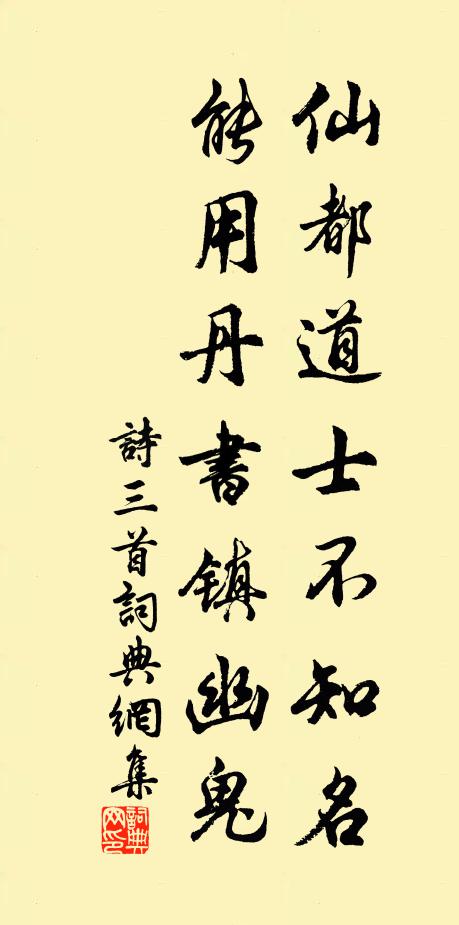 仙都道士不知名
能用丹書鎮幽鬼
詩三首詞典網集
詞典网印